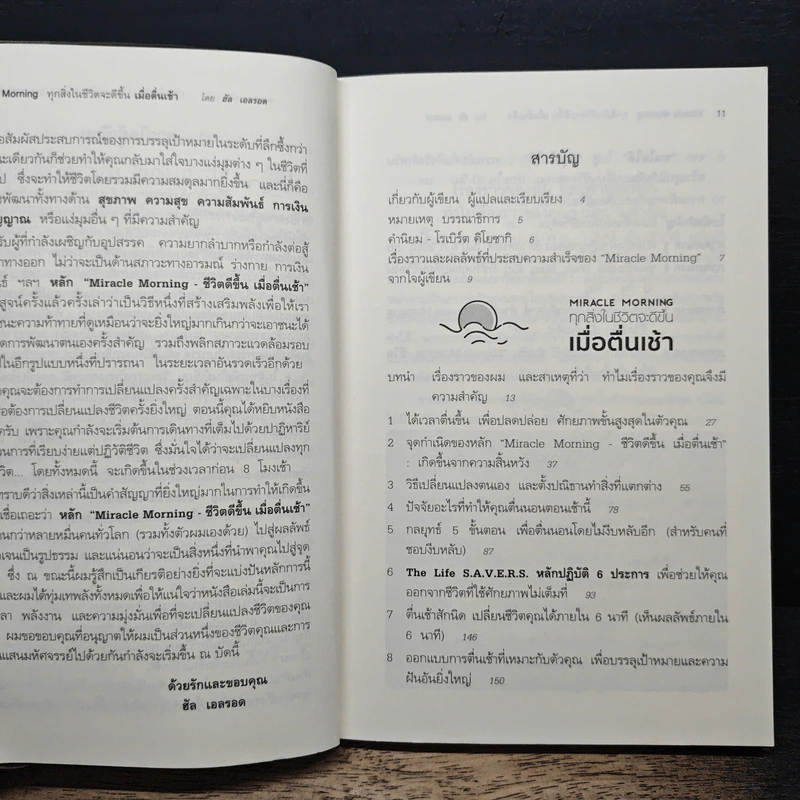 Morning ทุกสิ่งในชีวิตจะดีขึ้น เมื่อตื่นเช้า โดย ฮัล เอลรอด
อสัมผัสประสบการณ์ของการบรรลุเป้าหมายในระดับที่ลึกซึ้งกว่า
นะเดียวกันก็ช่วยทำให้คุณกลับมาใส่ใจบางแง่มุมต่าง ๆ ในชีวิตที่
ป ซึ่งจะทำให้ชีวิตโดยรวมมีความสมดุลมากยิ่งขึ้น และนี่ก็คือ
งพัฒนาทั้งทางด้าน สุขภาพ ความสุข ความสัมพันธ์ การเงิน
ญญาณ หรือแง่มุมอื่น ๆ ที่มีความสำคัญ
รับผู้ที่กำลังเผชิญกับอุปสรรค ความยากลำบากหรือกำลังต่อสู้
าทางออก ไม่ว่าจะเป็นด้านสภาวะทางอารมณ์ ร่างกาย การเงิน
ธ์ ฯลฯ หลัก “Miracle Morning - ชีวิตดีขึ้น เมื่อตื่นเช้า”
สูจน์ครั้งแล้วครั้งเล่าว่าเป็นวิธีหนึ่งที่สร้างเสริมพลังเพื่อให้เรา
ชนะความท้าทายที่ดูเหมือนว่าจะยิ่งใหญ่มากเกินกว่าจะเอาชนะได้
ดการพัฒนาตนเองครั้งสำคัญ รวมถึงพลิกสภาวะแวดล้อมรอบ
ปในอีกรูปแบบหนึ่งที่ปรารถนา ในระยะเวลาอันรวดเร็วอีกด้วย
คุณจะต้องการทำการเปลี่ยนแปลงครั้งสำคัญเฉพาะในบางเรื่องที่
อต้องการเปลี่ยนแปลงชีวิตครั้งยิ่งใหญ่ ตอนนี้คุณได้หยิบหนังสือ
ครับ เพราะคุณกำลังจะเริ่มต้นการเดินทางที่เต็มไปด้วยปาฏิหาริย์
อนการที่เรียบง่ายแต่ปฏิวัติชีวิต ซึ่งมั่นใจได้ว่าจะเปลี่ยนแปลงทุก
วิต... โดยทั้งหมดนี้ จะเกิดขึ้นในช่วงเวลาก่อน 8 โมงเช้า
ทราบดีว่าสิ่งเหล่านี้เป็นคำสัญญาที่ยิ่งใหญ่มากในการทำให้เกิดขึ้น
เชื่อเถอะว่า หลัก “Miracle Morning - ชีวิตดีขึ้น เมื่อตื่นเช้า”
านกว่าหลายหมื่นคนทั่วโลก (รวมทั้งตัวผมเองด้วย) ไปสู่ผลลัพธ์
ดเจนเป็นรูปธรรม และแน่นอนว่าจะเป็นสิ่งหนึ่งที่นำพาคุณไปสู่จุด
ซึ่ง ณ ขณะนี้ผมรู้สึกเป็นเกียรติอย่างยิ่งที่จะแบ่งปันหลักการนี้
และผมได้ทุ่มเทพลังทั้งหมดเพื่อให้แน่ใจว่าหนังสือเล่มนี้จะเป็นการ
ลา พลังงาน และความมุ่งมั่นเพื่อที่จะเปลี่ยนแปลงชีวิตของคุณ
ผมขอขอบคุณที่อนุญาตให้ผมเป็นส่วนหนึ่งของชีวิตคุณและการ
แสนมหัศจรรย์ไปด้วยกันกำลังจะเริ่มขึ้น ณ บัดนี้
ด้วยรักและขอบคุณ
ฮัล เอลรอด
11
สารบัญ
เกี่ยวกับผู้เขียน ผู้แปลและเรียบเรียง 4
หมายเหตุ บรรณาธิการ 5
คำนิยม - โรเบิร์ต คิโยซากิ 6
เรื่องราวและผลลัพธ์ที่ประสบความสำเร็จของ “Miracle Morning” 7
จากใจผู้เขียน 9
MIRACLE MORNING
ทุกสิ่งในชีวิตจะดีขึ้น
เมื่อตื่นเช้า
บทนำ เรื่องราวของผม และสาเหตุที่ว่า ทำไมเรื่องราวของคุณจึงมี
ความสำคัญ 13
1 ได้เวลาตื่นขึ้น เพื่อปลดปล่อย ศักยภาพขั้นสูงสุดในตัวคุณ 27
2 จุดกำเนิดของหลัก “Miracle Morning - ชีวิตดีขึ้น เมื่อตื่นเช้า”
: เกิดขึ้นจากความสิ้นหวัง 37
3 วิธีเปลี่ยนแปลงตนเอง และตั้งปณิธานทำสิ่งที่แตกต่าง 55
4 ปัจจัยอะไรที่ทำให้คุณตื่นนอนตอนเช้านี้ 78
5 กลยุทธ์ 5 ขั้นตอน เพื่อตื่นนอนโดยไม่งีบหลับอีก (สำหรับคนที่
ชอบงีบหลับ) 87
6 The Life S.A.V.E.R.S. หลักปฏิบัติ 6 ประการ เพื่อช่วยให้คุณ
ออกจากชีวิตที่ใช้ศักยภาพไม่เต็มที่ 93
7 ตื่นเช้าสักนิด เปลี่ยนชีวิตคุณได้ภายใน 6 นาที (เห็นผลลัพธ์ภายใน
6 นาที) 146
8 ออกแบบการตื่นเช้าที่เหมาะกับตัวคุณ เพื่อบรรลุเป้าหมายและความ
ฝันอันยิ่งใหญ่ 150